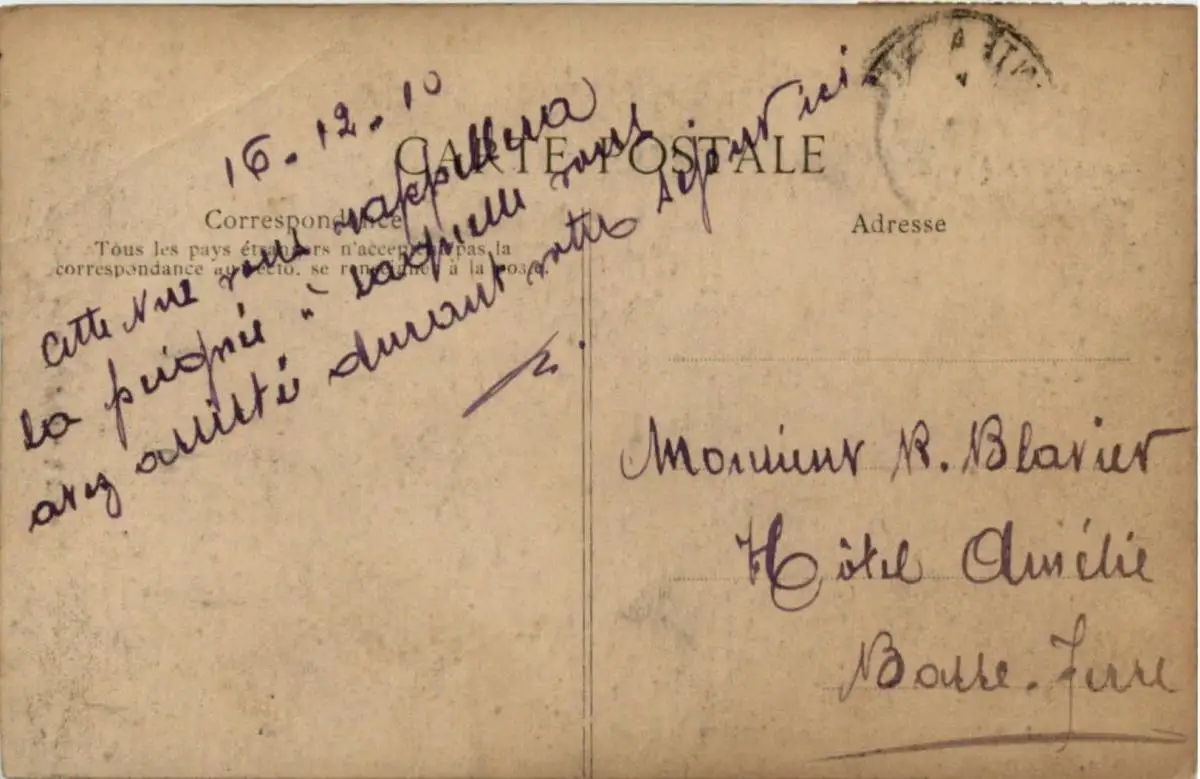 16.12.10
CARTE POSTALE
Correspondance
Tous les pays étrangers n'acceptent pas la
correspondance au recto, se renseigner à la poste.
Adresse
Cette Vue vous rappellera
la peignée à laquelle vous
avez assisté durant votre séjour ici
Monsieur R. Blavier
Hôtel Amélie
Basse-Terre